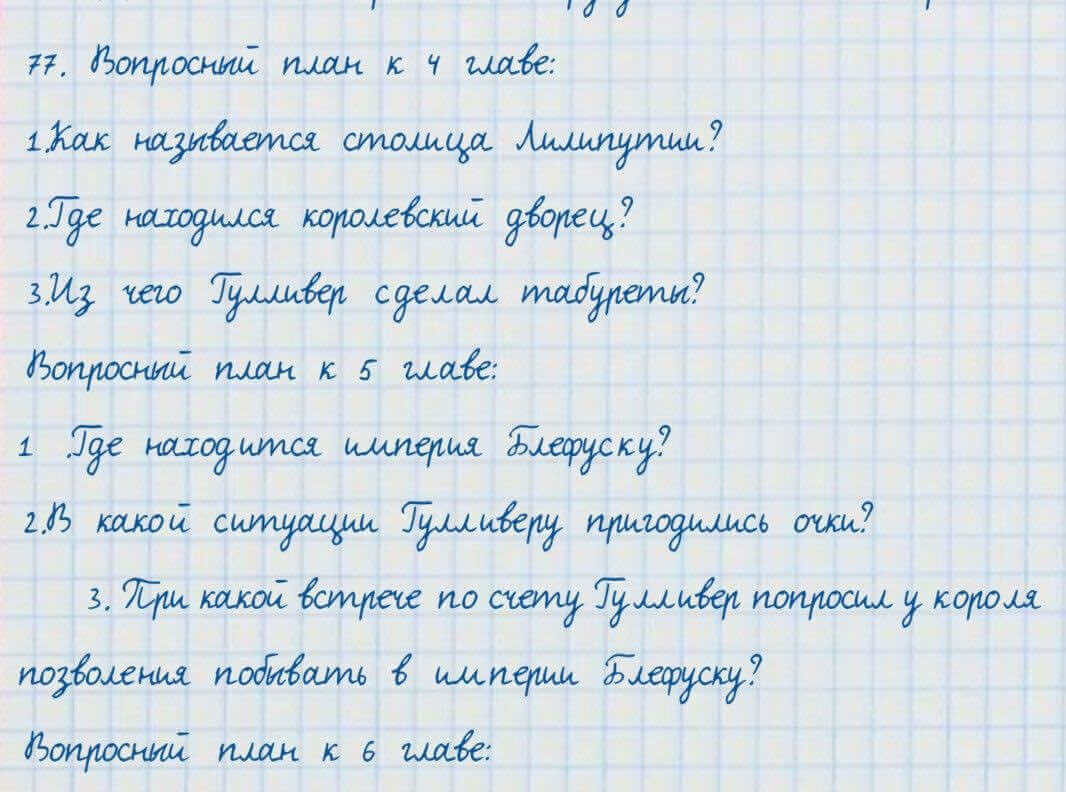 77. Вопросный план к 4 главе:
1.Как называется столица Лилипутии?
2.Где находился королевский дворец?
3.Из чего Гулливер сделал табуреты?
Вопросный план к 5 главе:
1 .Где находится империя Блефуску?
2.В какой ситуации Гулливеру пригодились очки?
3. При какой встрече по счету Гулливер попросил у короля
позволения побывать в империи Блефуску?
Вопросный план к 6 главе: